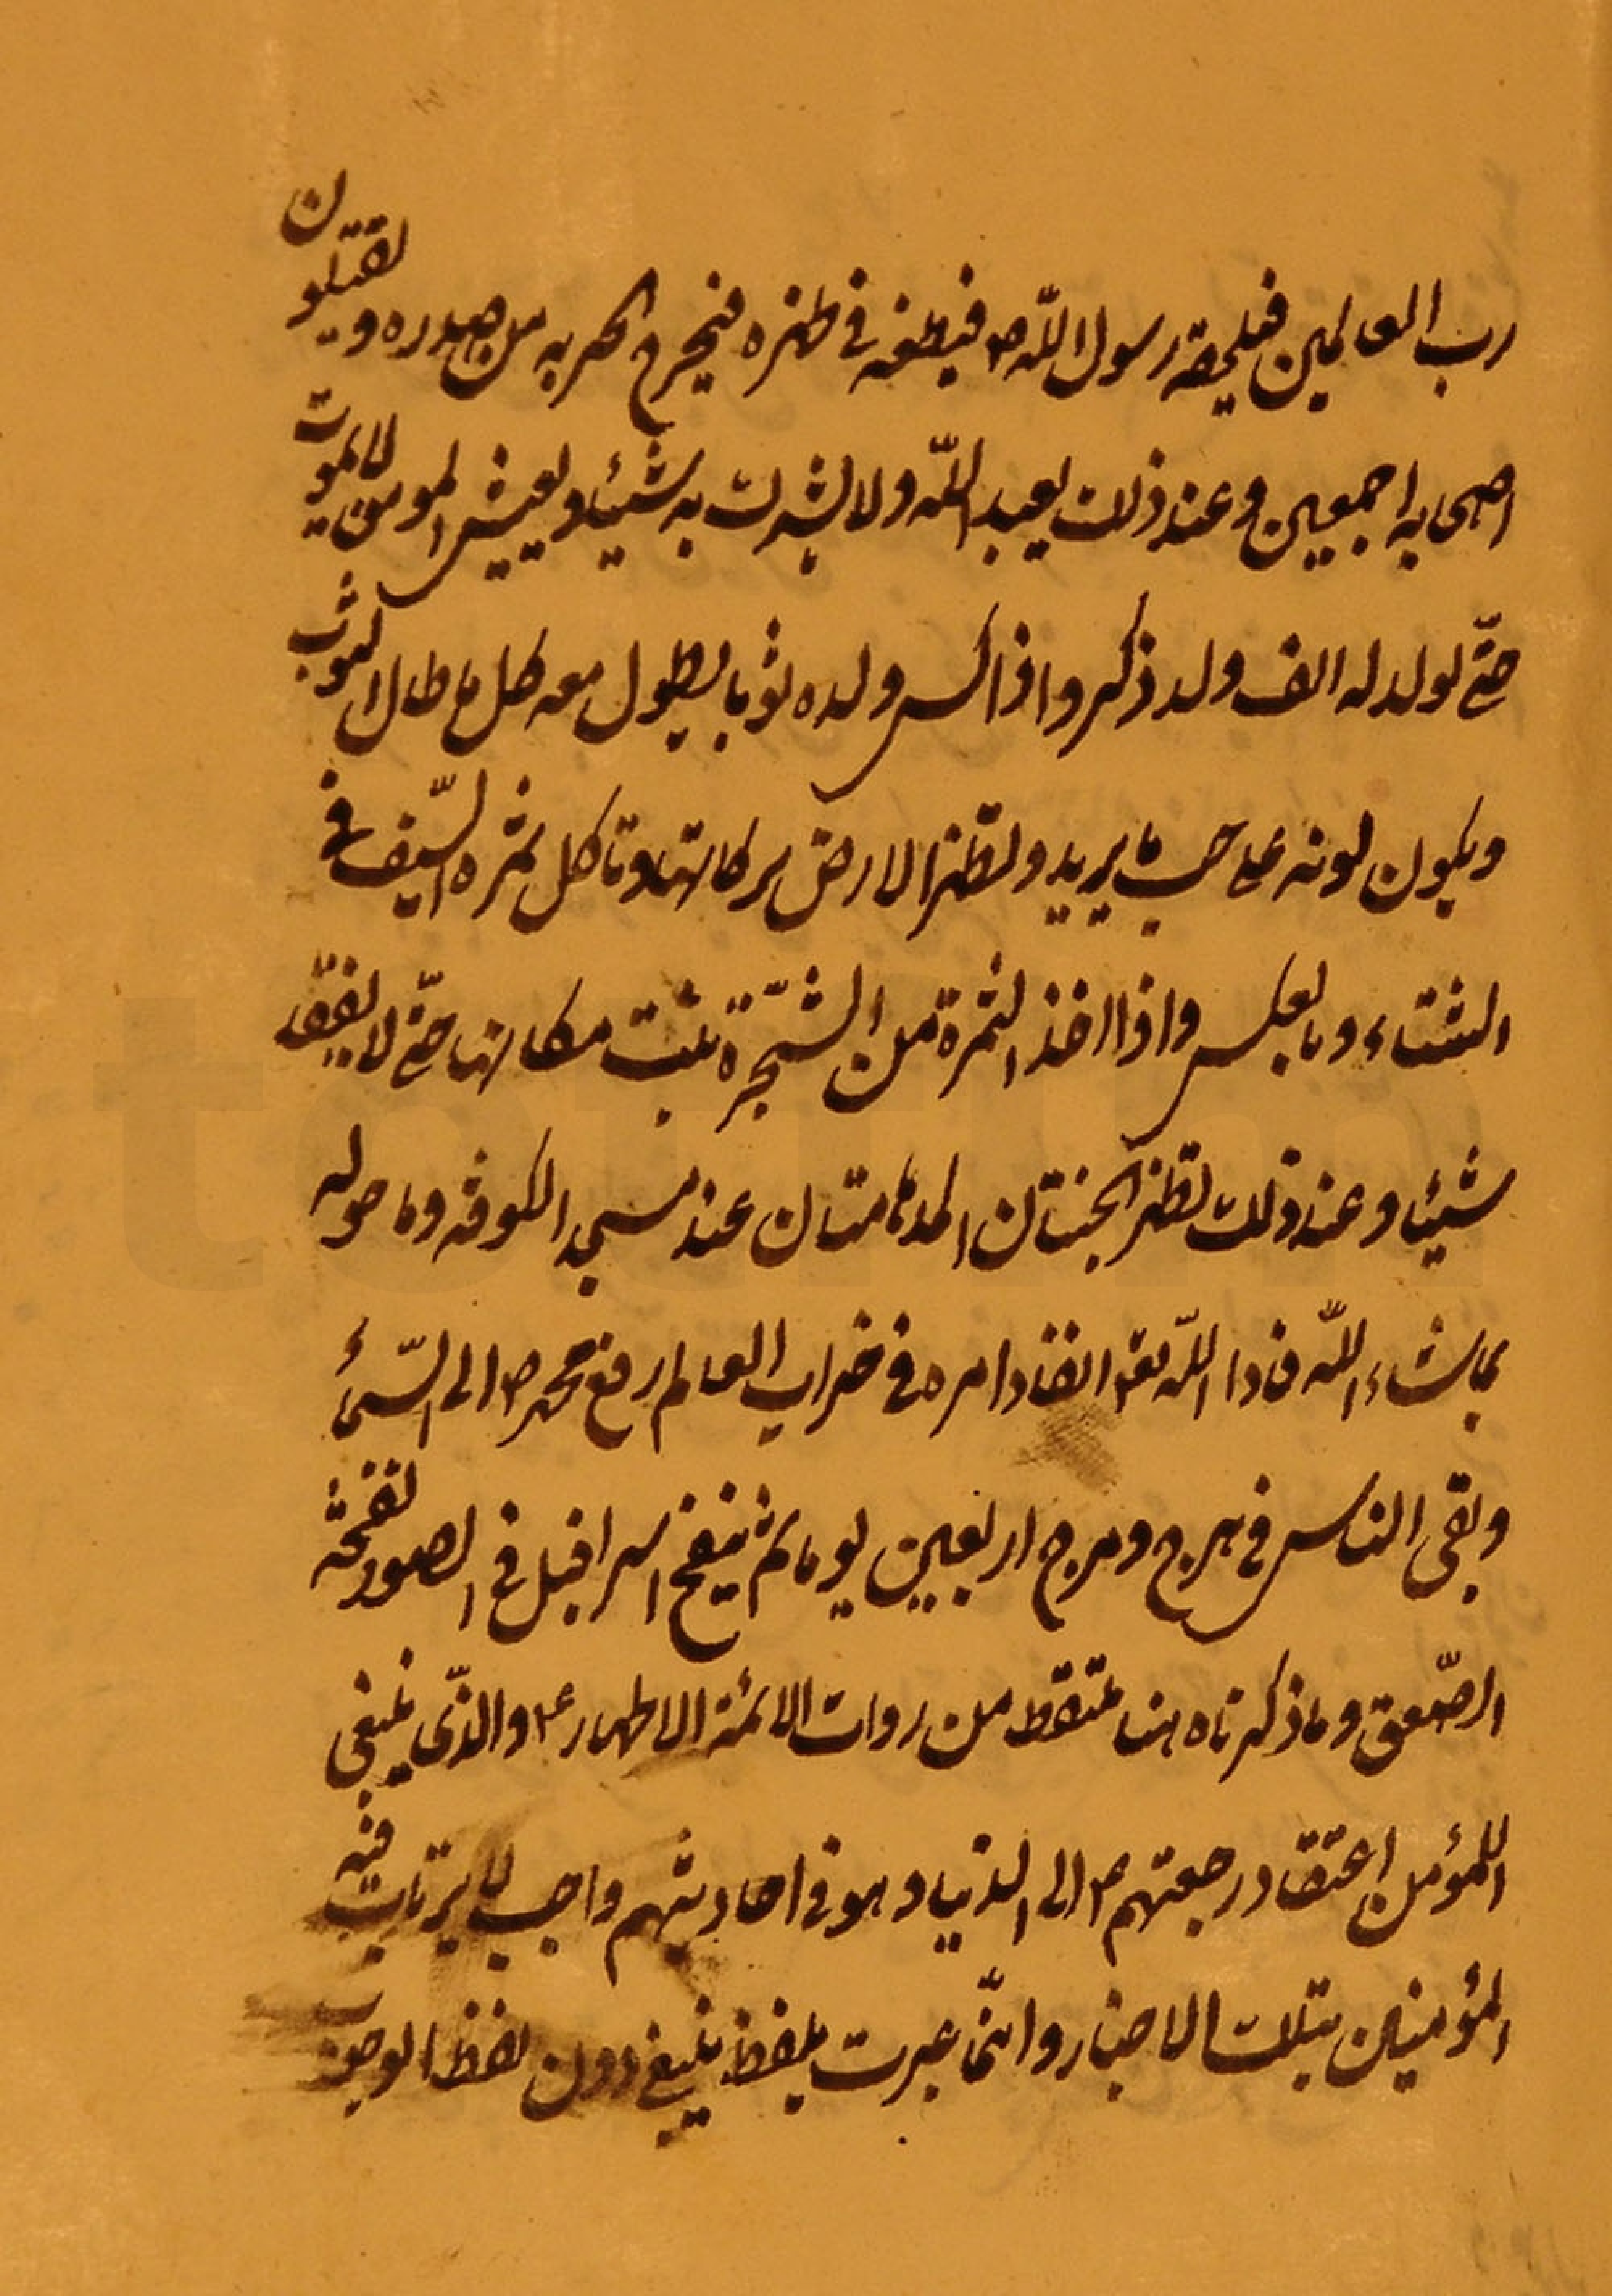 رب العالمین فیلحقه رسول الله ص فیطعنه فی ظهره فیخرج الحربه من صدره و یقتلون
اصحابه اجمعین و عند ذلک یعبد الله و لا یشرک به شیئا و یعیش المومن لا یموت
حتّی یولد له الف ولد ذکر و اذا کسی ولده ثوبا یطول معه کل ما طال الثوب
و یکون لونه علی حسب ما یرید و تظهر الارض برکاتها و تاکل ثمره الصّیف فی
الشتاء و بالعکس و اذا اخذ الثمرة من الشّجرة نبتت مکانها حتّی لا یفقد
شیئا و عند ذلک تظهر الجنتان المدهامتان عند مسجد الکوفه و ما حوله
بماشاء الله فاذا الله تع انفاذ امره فی خراب العالم رفع محمد ص الی السّماء
و بقی الناس فی هرج و مرج اربعین یوما ثم ینفخ اسرافیل فی الصور نفخة
الصّعق و ما ذکرناه هنا ملتقط من روات الائمة الاطهار ع و الذّی ینبغی
للمؤمن اعتقاد رجعتهم ع الی الدنیا و هو فی احادیثهم واجب لا یرتاب فیه
المؤمنین بتلک الاخبار و انّما عبرت بلفظ ینبغی دون لفظ الوجوب